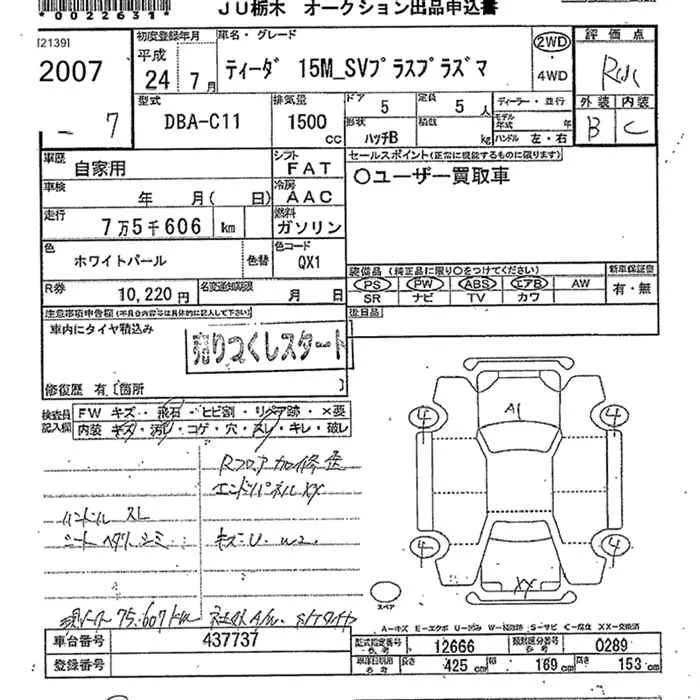 *0022631*
JU栃木 オークション出品申込書
[2139]
2007
- 7
初度登録年月
平成
24 7月
車名・グレード
ティーダ 15M_SVプラスプラズマ
2WD
4WD
評価点
外装 内装
B C
型式
DBA-C11
排気量
1500 cc
ドア 5
定員 5人
形状 ハッチB
積載 kg
ディーラー・並行
モデル年式 年
ハンドル 左・右
車歴
自家用
シフト
FAT
セールスポイント(正常に機能するものに限ります)
〇ユーザー買取車
車検 年 月( 日)
冷房
AAC
走行
7万5千606 km
燃料
ガソリン
色
ホワイトパール
色替
色コード
QX1
装備品(純正品に限り〇をつけてください)
新車保証書
PS PW ABS エアB AW
有・無
SR ナビ TV カワ
R券
10,220円
名変通知期限 月 日
後日品
注意事項申告欄(不具合内容等は具体的に記入して下さい)
車内にタイヤ積込み
売りつくしスタート
修復歴 有〔箇所 〕
検査員記入欄
FW キズ・飛石・ヒビ割・リペア跡・×要
内装 キズ・汚れ・コゲ・穴・スレ・キレ・破レ
Rフロア加修歪
エンドパネルXX
ハンドル スレ
シート ヘタリ シミ
キズ・U W2
A1
4 4
4 4
XX
スペア
A-キズ E-エクボ U-凹み W-補修跡 S-サビ C-腐食 XX-交換済
車台番号 437737
登録番号
型式指定番号 参考 12666
類別区分番号 参考 0289
長さ 425cm 幅 169cm 高さ 153cm